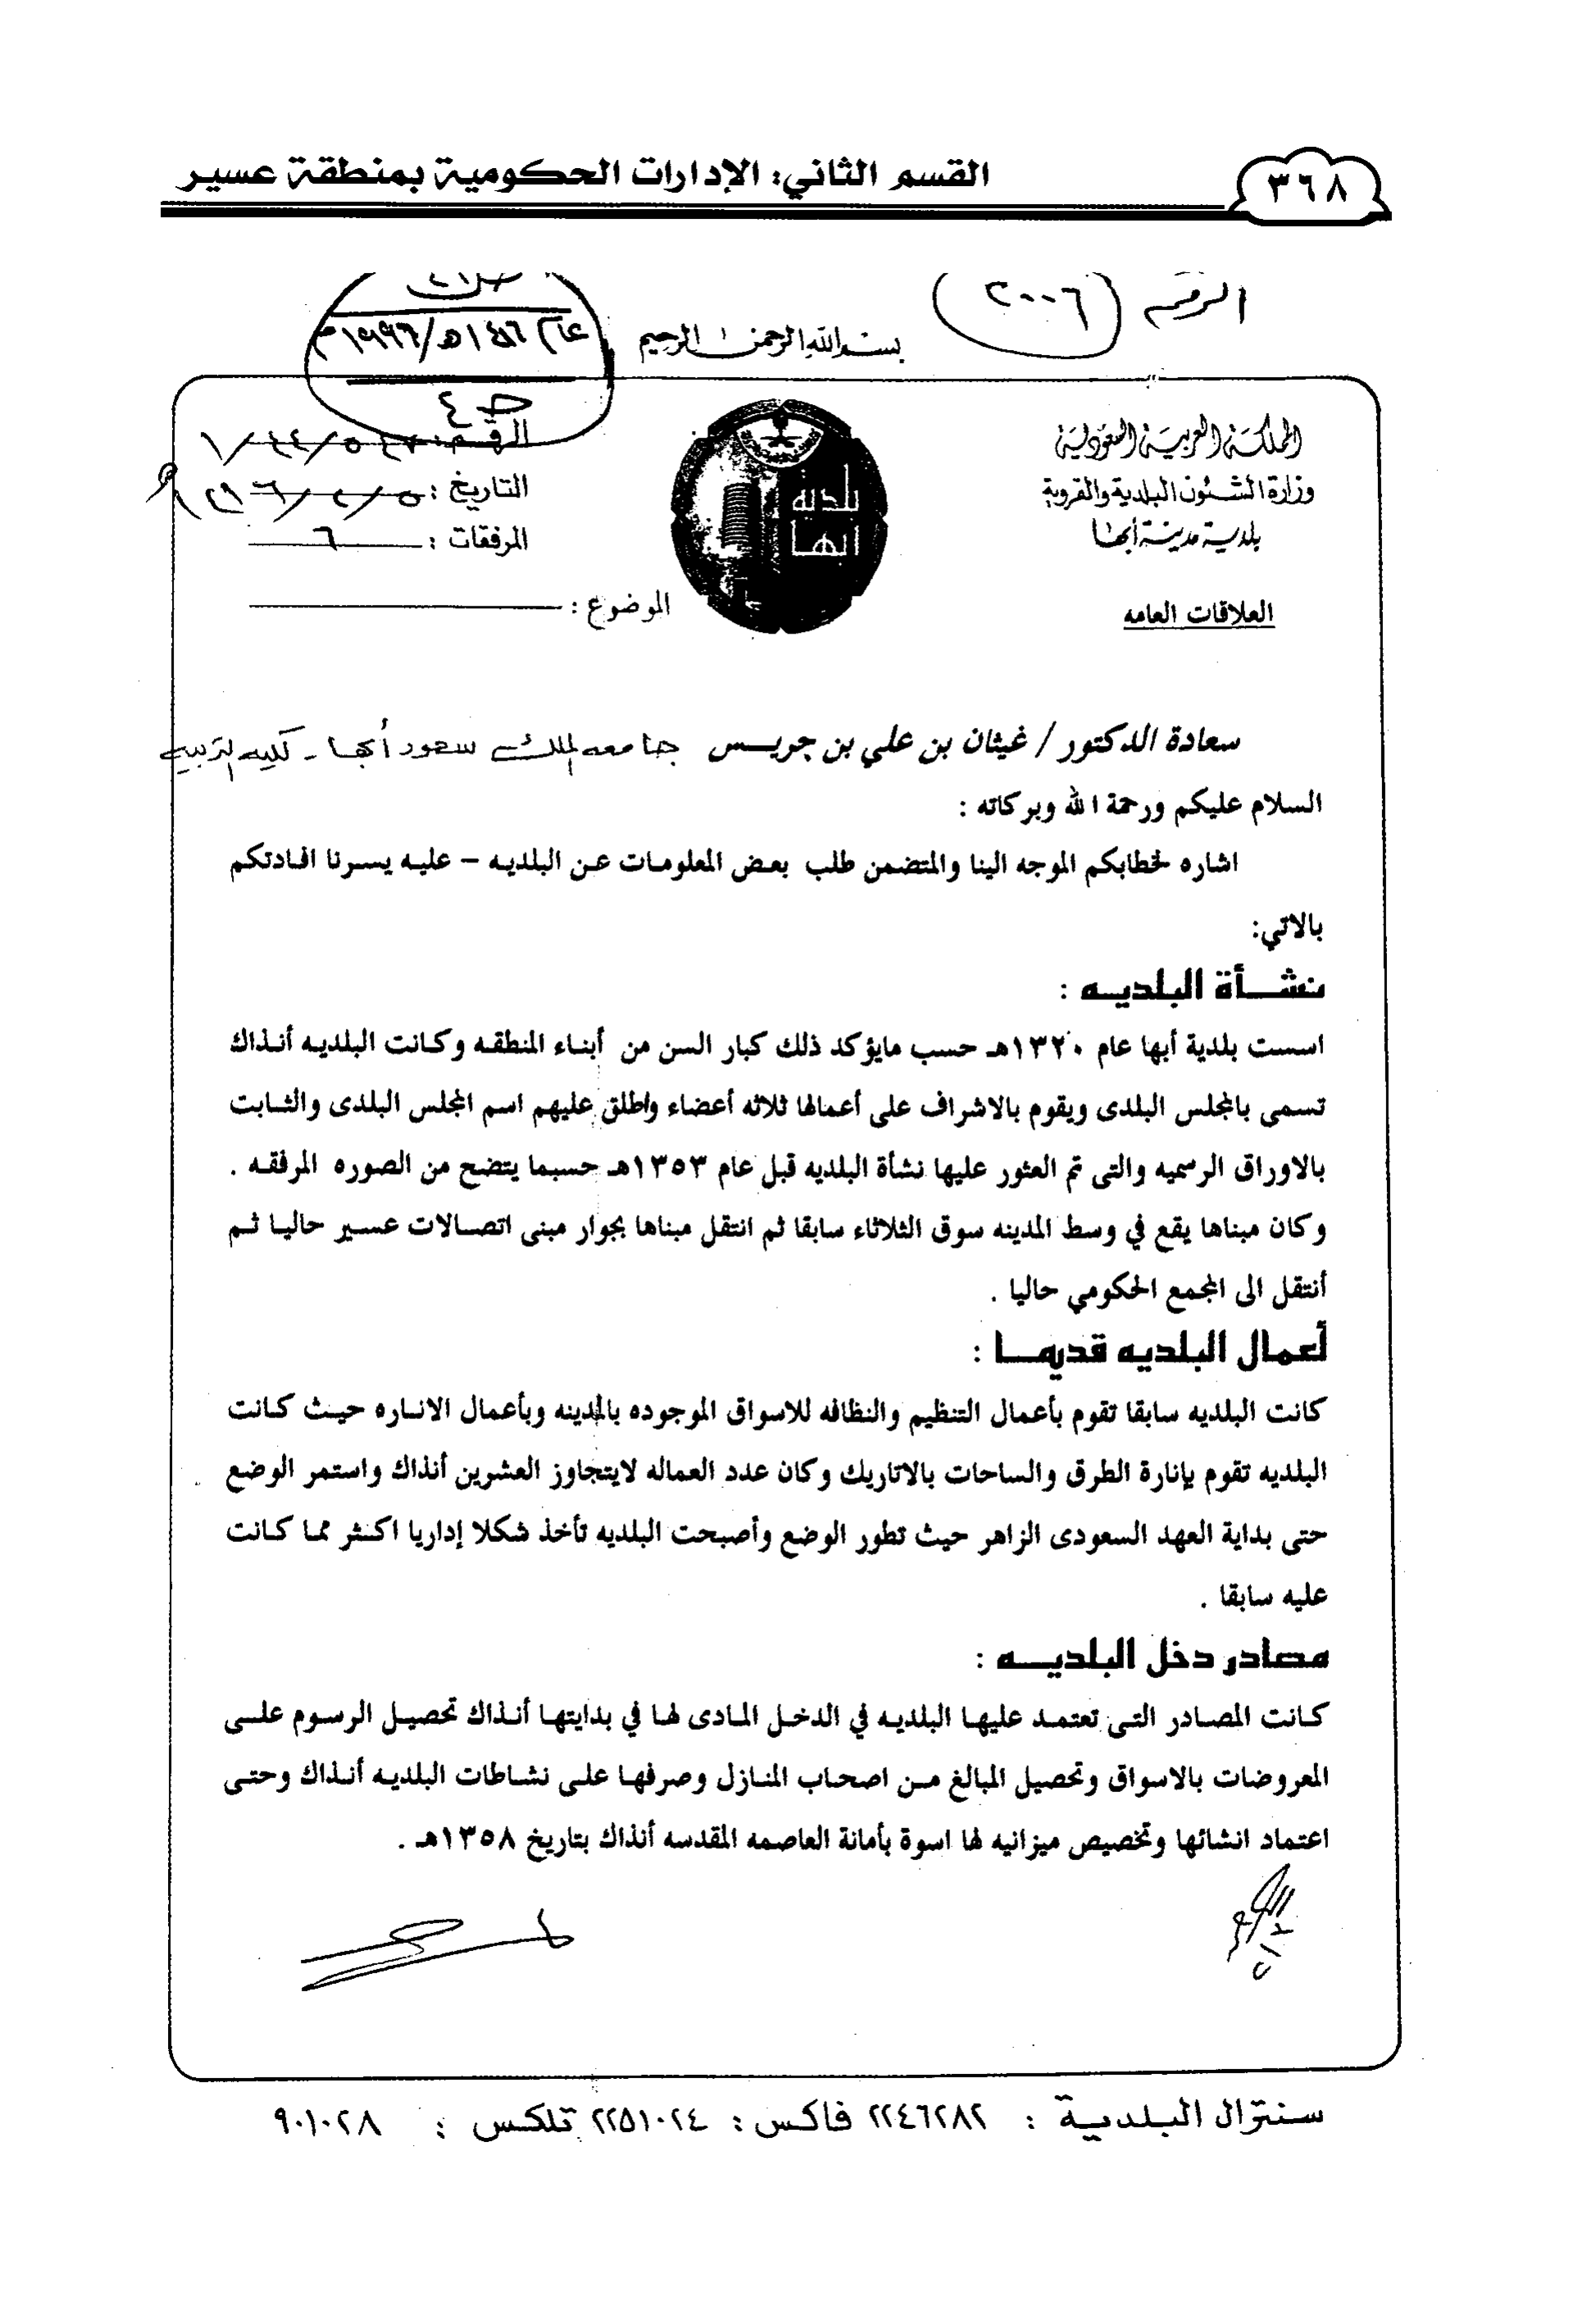 القسم الثاني: الإدارات الحكومية بمنطقة عسير
٣٦٨
الرقم (٢٠٠٦)
عام ١٤١٦هـ/١٩٩٦م
بسم الله الرحمن الرحيم
ص ٤
المملكة العربية السعودية
وزارة الشئون البلدية والقروية
بلدية مدينة أبها
العلاقات العامه
بلدية
أبها
الرقم:
التاريخ :
المرفقات : ٦
الموضوع :
سعادة الدكتور / غيثان بن علي بن جريـــس جامعه الملك سعود أبها - كليه التربيه
السلام عليكم ورحمة الله وبركاته :
اشاره لخطابكم الموجه الينا والمتضمن طلب بعض المعلومات عن البلديه – عليه يسرنا افادتكم
بالاتي:
نشـــأة البلديـــه :
اسست بلدية أبها عام ١٣٢٠هـ حسب مايؤكد ذلك كبار السن من أبناء المنطقه وكانت البلديه أنذاك
تسمى بالمجلس البلدى ويقوم بالاشراف على أعمالها ثلاثه أعضاء واطلق عليهم اسم المجلس البلدى والثابت
بالاوراق الرسميه والتى تم العثور عليها نشأة البلديه قبل عام ١٣٥٣هـ حسبما يتضح من الصوره المرفقه .
وكان مبناها يقع في وسط المدينه سوق الثلاثاء سابقا ثم انتقل مبناها بجوار مبنى اتصالات عسير حاليا ثم
أنتقل الى المجمع الحكومي حاليا .
أعمال البلديه قديمـــا :
كانت البلديه سابقا تقوم بأعمال التنظيم والنظافه للاسواق الموجوده بالمدينه وبأعمال الاناره حيث كانت
البلديه تقوم بإنارة الطرق والساحات بالاتاريك وكان عدد العماله لايتجاوز العشرين أنذاك واستمر الوضع
حتى بداية العهد السعودى الزاهر حيث تطور الوضع وأصبحت البلديه تأخذ شكلا إداريا اكثر مما كانت
عليه سابقا .
مصادر دخل البلديـــه :
كانت المصادر التى تعتمد عليها البلديه في الدخل المادى لها في بدايتها أنذاك تحصيل الرسوم على
المعروضات بالاسواق وتحصيل المبالغ من اصحاب المنازل وصرفها على نشاطات البلديه أنذاك وحتى
اعتماد انشائها وتخصيص ميزانيه لها اسوة بأمانة العاصمه المقدسه أنذاك بتاريخ ١٣٥٨هـ .
سنترال البلدية : ٢٢٤٦٢٨٢ فاكس : ٢٢٥١٠٢٤ تلكس : ٩٠١٠٢٨